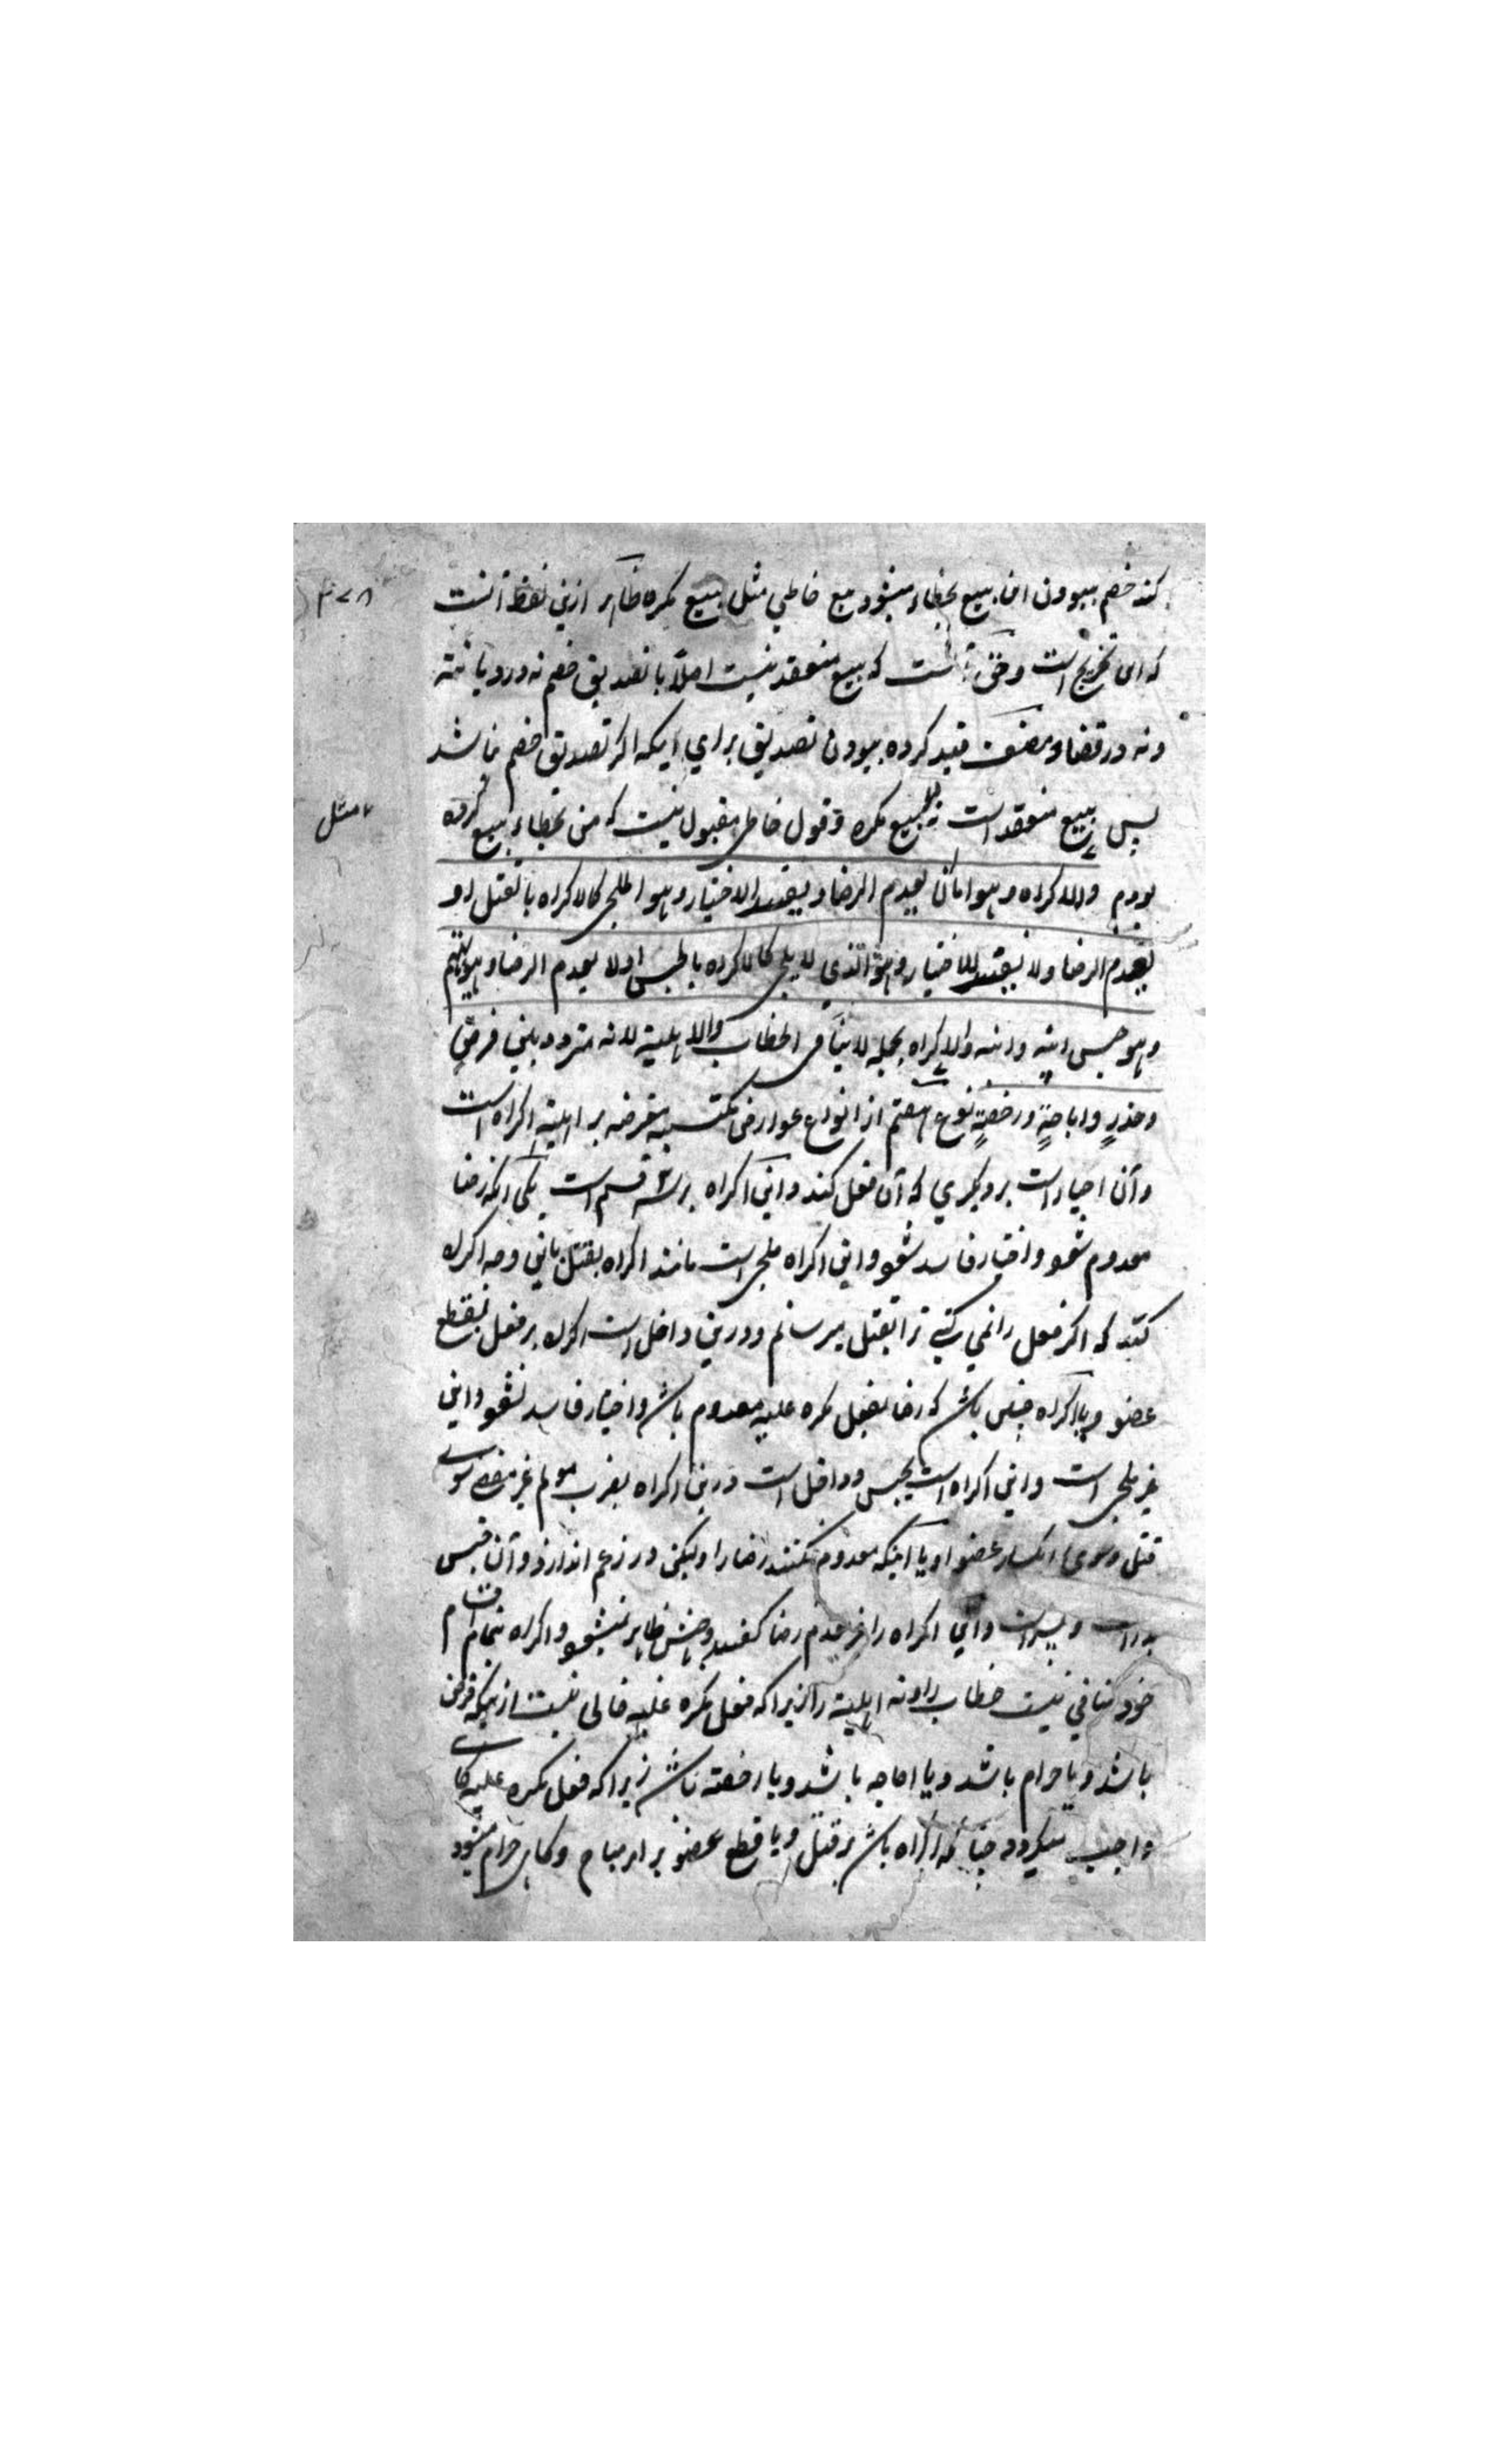 کند خصم ببودن این بیع بخطاء میشود بیع خاطی مثل بیع مکره ظاهر ازین لفظ آنست
که این تخریج است و حق آنست که بیع منعقد نیست اصلاً با تصدیق خصم نه در دیانته
ونه در قضاء و مصنف قید کرده ببودن تصدیق برای اینکه اگر تصدیق خصم نباشد
پس بیع منعقد است بیع مکره و قول خاطی مقبول نیست که من بخطاء بیع کرده
بودم والاکراه وهو اما ان یعدم الرضا ویفسد الاختیار وهو الملجی کالاکراه بالقتل او
یعدم الرضا ولا یفسد الاختیار وهو الذی لا یلجی کالاکراه بالحبس او لا یعدم الرضا وهو ان یهتم
وهو حبس ابیه وابنه والاکراه بجمله لا ینافی الخطاب والاهلیة لانه متردد بین فرض
وحذر واباحة ورخصة نوع هفتم از انواع عوارض مکتسبه معترضه بر اهلیة اکراه است
وآن اجبار است بر دیگری که آن فعل کند واین اکراه بر سه قسم است یکی آنکه رضا
معدوم شود واختیار فاسد شود واین اکراه ملجی است مانند اکراه بقتل باین وجه اکراه
کند که اگر فعل را نمی کنی ترا بقتل میرسانم ودرین داخل است اکراه بر فعل بقطع
عضو ویا اکراه چنین باشد که رضا بفعل مکره علیه معدوم باشد واختیار فاسد نشود واین
غیر ملجی است واین اکراه است بحبس وداخل است درین اکراه بضرب مولم غیر مفضی سوی
قتل وسوی انکسار عضو او یا اینکه معدوم نکنند رضا را ولیکن در زعم اندازد وآن حبس
پدر است وپسر است واین اکراه را غیر عدم رضا گفتند وجهش ظاهر نمیشود واکراه بتمام اقسام
خود منافی نیست خطاب را ونه اهلیة را زیرا که فعل مکره علیه خالی نیست از ینکه فرض
باشد ویا حرام باشد ویا اباحه باشد ویا رخصة باشد زیرا که فعل مکره علیه گاهی
واجب میگردد چنانکه اکراه باشد بر قتل ویا قطع عضو بر امر مباح وگاهی حرام میشود
مثل